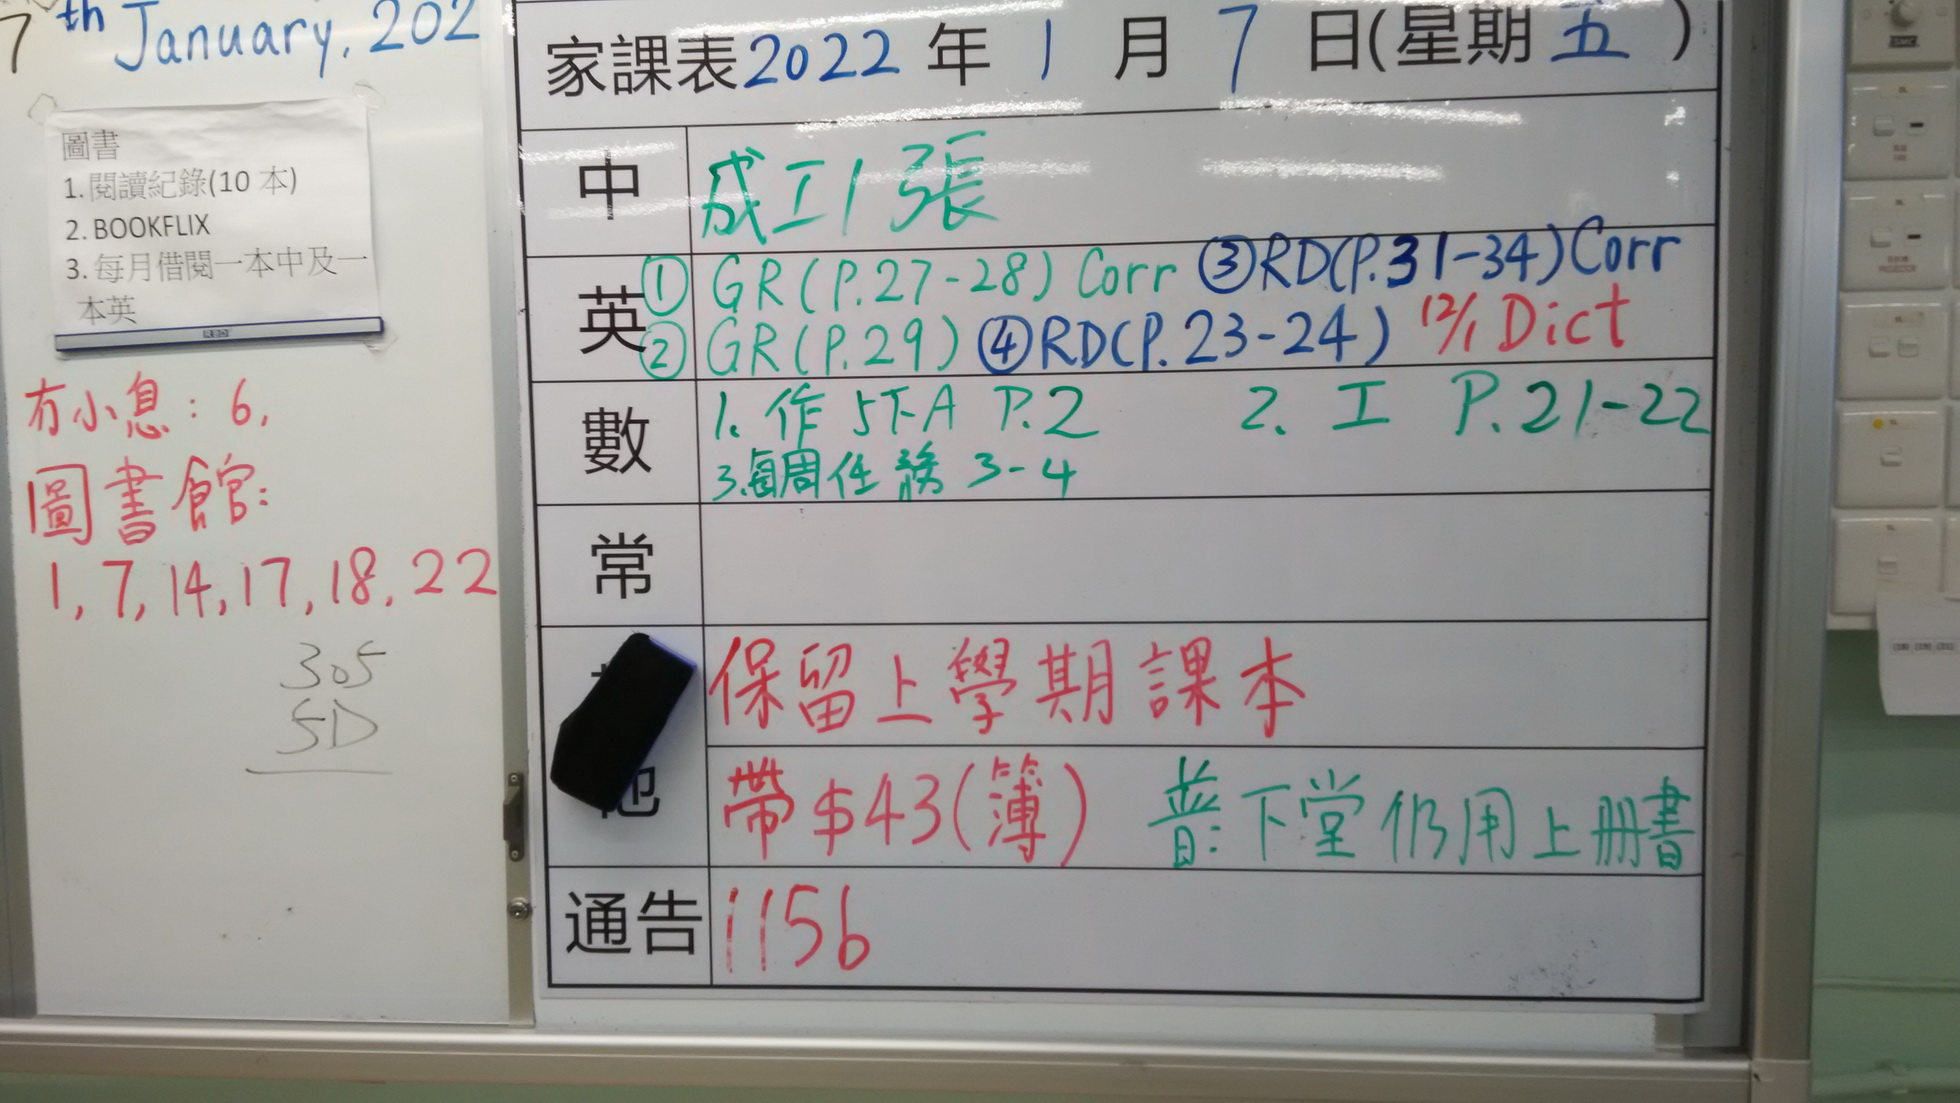 7th January, 202
圖書
1. 閱讀紀錄(10 本)
2. BOOKFLIX
3. 每月借閱一本中及一
本英
冇小息: 6,
圖書館:
1, 7, 14, 17, 18, 22
305
5D
家課表2022年1月7日(星期五)
中 成工1張
英 ①GR(P.27-28) Corr ③RD(P.31-34)Corr
②GR(P.29) ④RD(P.23-24) 12/1 Dict
數 1. 作5下A P.2 2. 工 P.21-22
3.每周任務 3-4
常
保留上學期課本
他 帶$43(簿) 普: 下堂仍用上冊書
通告 1156